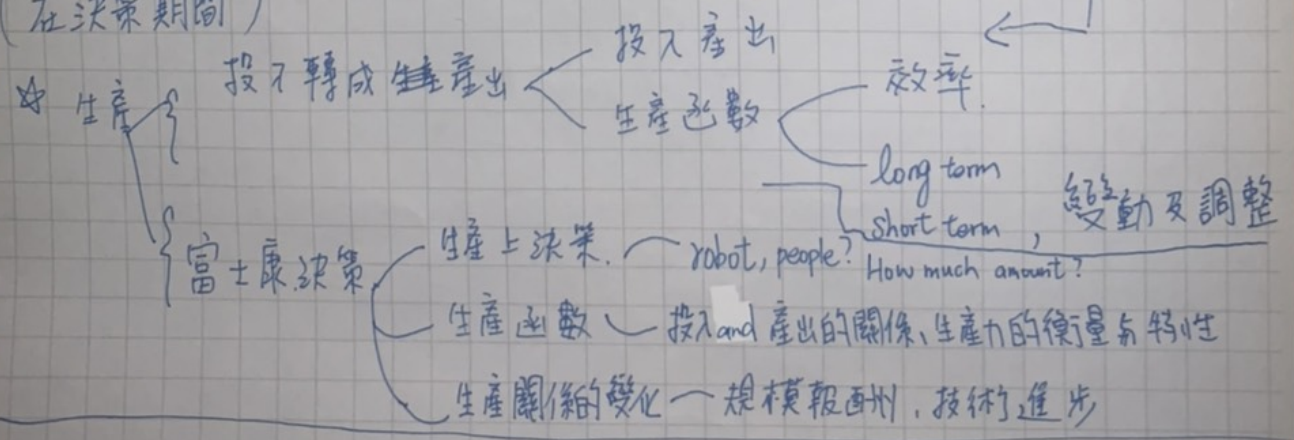 (在決策期間)
☆ 生產
投入轉成生產產出
投入產出
生產函數
效率.
long term
short term, 變動及調整
富士康決策
生產上決策.
robot, people? How much amount?
生產函數
投入and 產出的關係、生產力的衡量與特性
生產關係的變化
規模報酬、技術進步